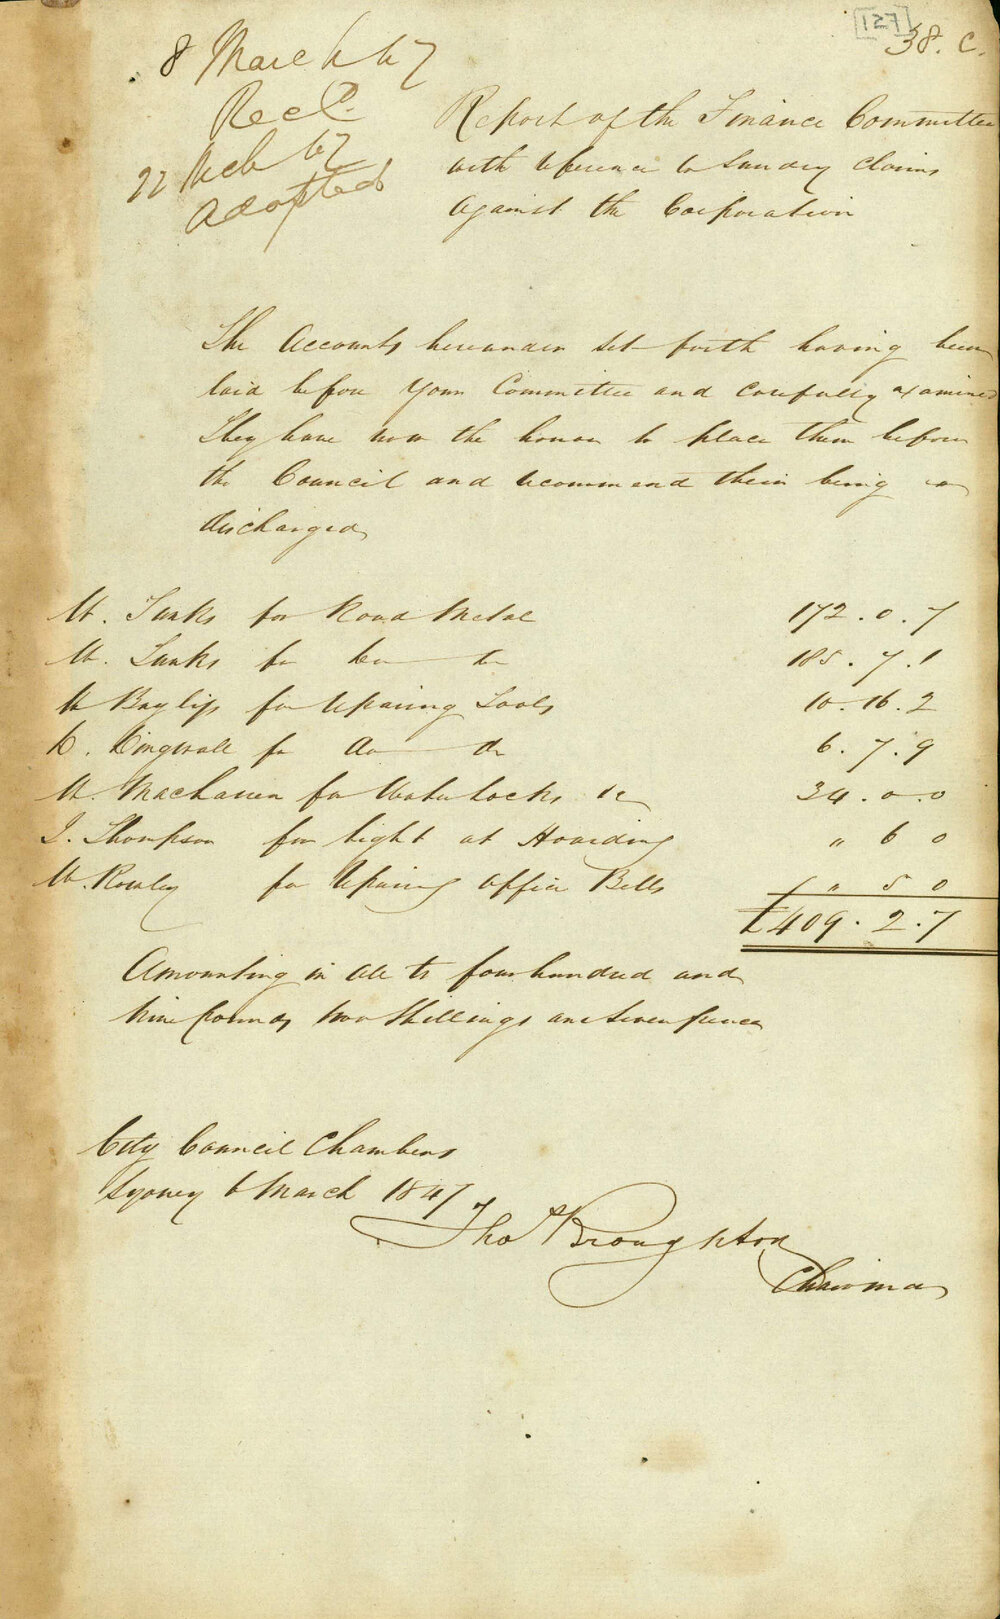 [127]
38. C.
8 March 47
Recd.
22 Mch 47
Adopted
Report of the Finance Committee
with reference to Sundry Claims
Against the Corporation
The Accounts hereunder set forth having been
laid before Your Committee and carefully examined
They have now the honor to place them before
the Council and recommend their being
discharged
W. Tunks for Road Metal 172 . 0 . 7
W. Tunks for do do 185 . 7 . 1
W Bayliss for repairing Tools 10 . 16 . 2
D. Dingwall for do do 6 . 7 . 9
for Water Cocks &c 34 . 0 . 0
J. Thompson for light at Hoarding " 6 0
W. Rowley for repairing office Bells " 5 0
£409 . 2 . 7
Amounting in all to four hundred and
Nine Pounds two Shillings and seven pence
City Council Chambers
Sydney 6 March 1847
Thos Broughton
Chairman